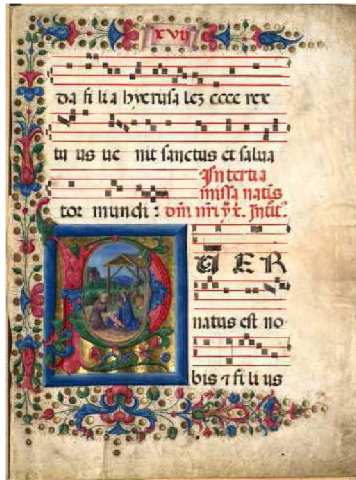 xvij
da fi li a hyerusa lez ecce rex
tu us ue nit sanctus et salua
In tertia
missa natiῑs
tor mundi : dñi nr̄i yħ. Intit.
P U ER
natus est no
bis ⁊ fi li us